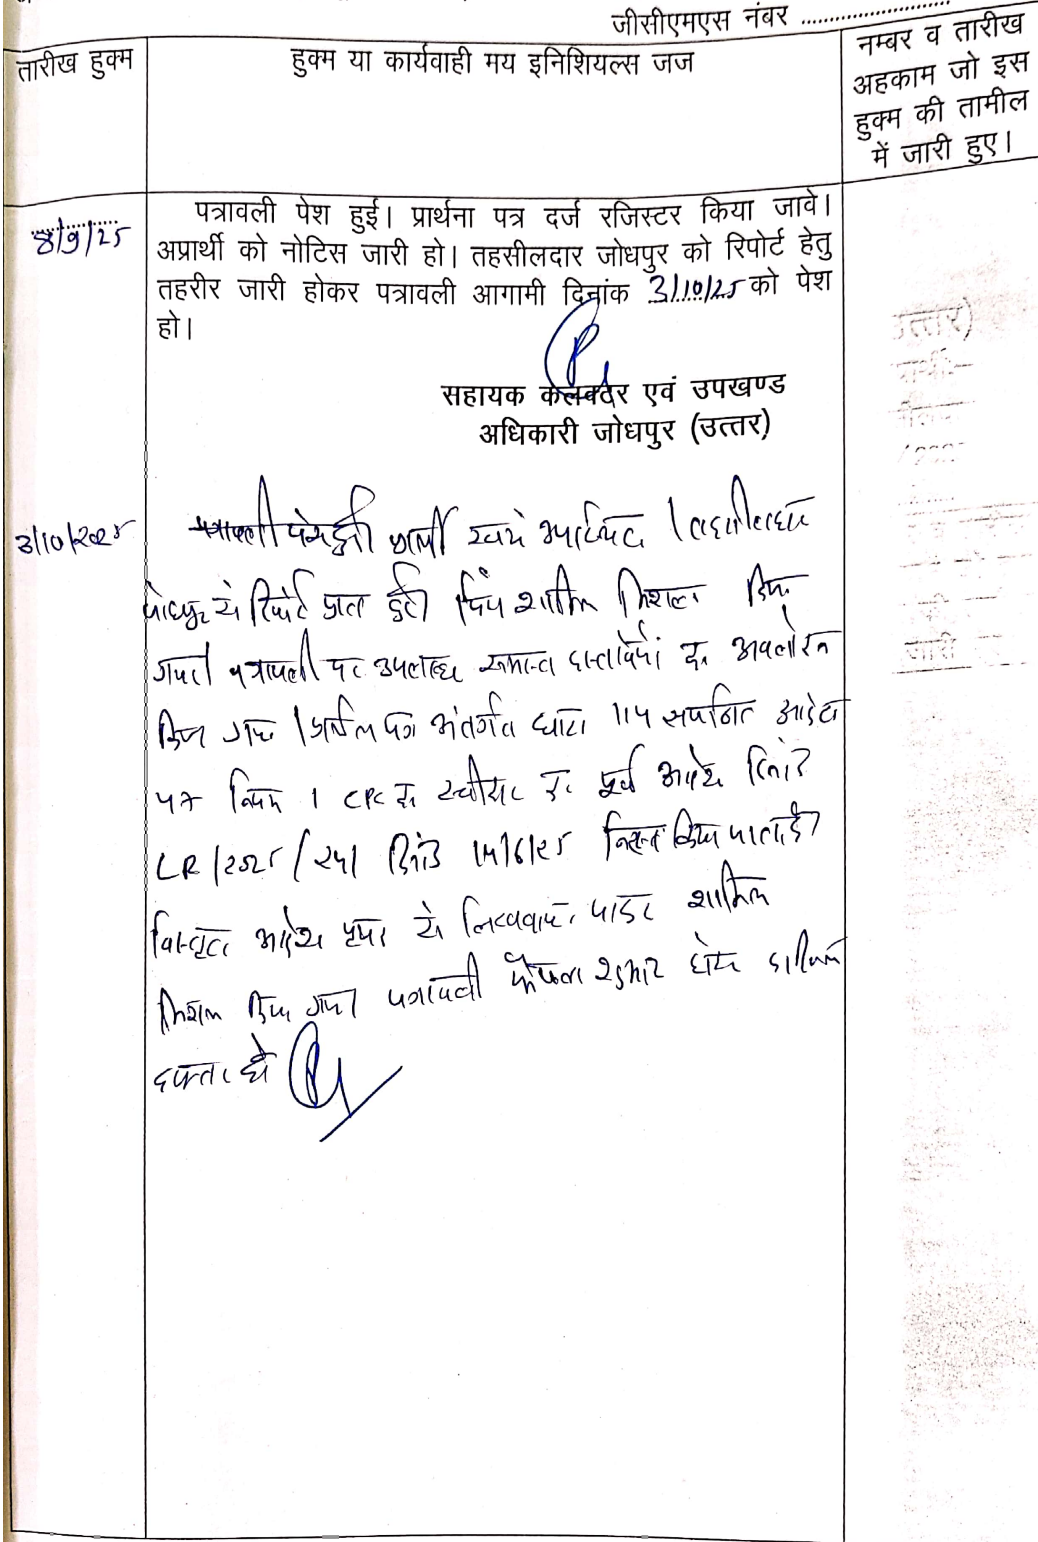 जीसीएमएस नंबर ..........................
तारीख हुक्म
हुक्म या कार्यवाही मय इनिशियल्स जज
नम्बर व तारीख
अहकाम जो इस
हुक्म की तामील
में जारी हुए।
8/9/25
पत्रावली पेश हुई। प्रार्थना पत्र दर्ज रजिस्टर किया जावे।
अप्रार्थी को नोटिस जारी हो। तहसीलदार जोधपुर को रिपोर्ट हेतु
तहरीर जारी होकर पत्रावली आगामी दिनांक 3/10/25 को पेश
हो।
सहायक कलक्टर एवं उपखण्ड
अधिकारी जोधपुर (उत्तर)
3/10/2025
पत्रावली पेश हुई प्रार्थी स्वयं उपस्थित । तहसीलदार
जोधपुर से रिपोर्ट प्राप्त हुई। शामिल मिशल किया
गया। पत्रावली पर उपलब्ध समस्त दस्तावेजों का अवलोकन
किया गया । प्रार्थना पत्र अंतर्गत धारा 114 सपठित आदेश
47 नियम 1 CPC का स्वीकार कर पूर्व आदेश
LR/2025/ 14/6/25 निरस्त किया जाता है।
विस्तृत आदेश पृथक से लिखवाया जाकर शामिल
मिशल किया गया। पत्रावली फैसल शुमार होकर दाखिल
दफ्तर हो
उत्तर)
जारी